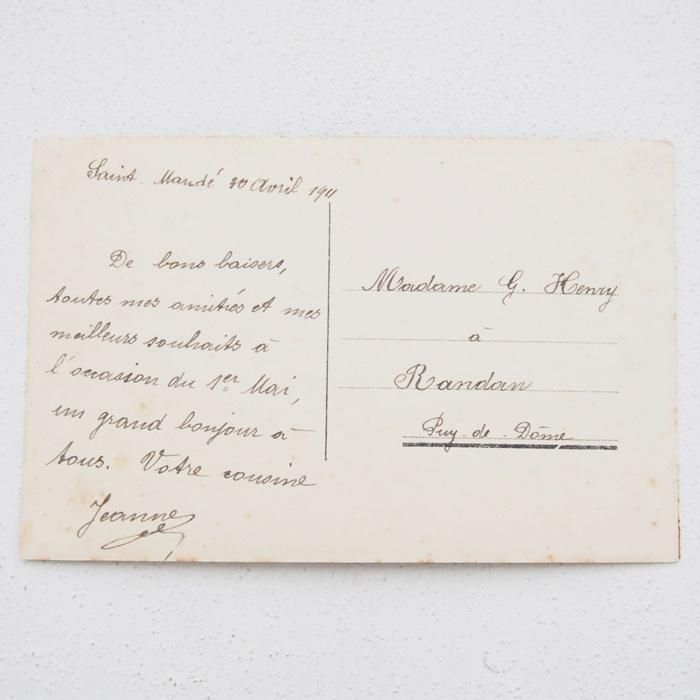 Saint Mandé 30 Avril 1911
De bons baisers,
toutes mes amitiés et mes
meilleurs souhaits à
l'occasion du 1er Mai,
un grand bonjour à
tous. Votre cousine
Jeanne
Madame G. Henry
à
Randan
Puy-de-Dôme